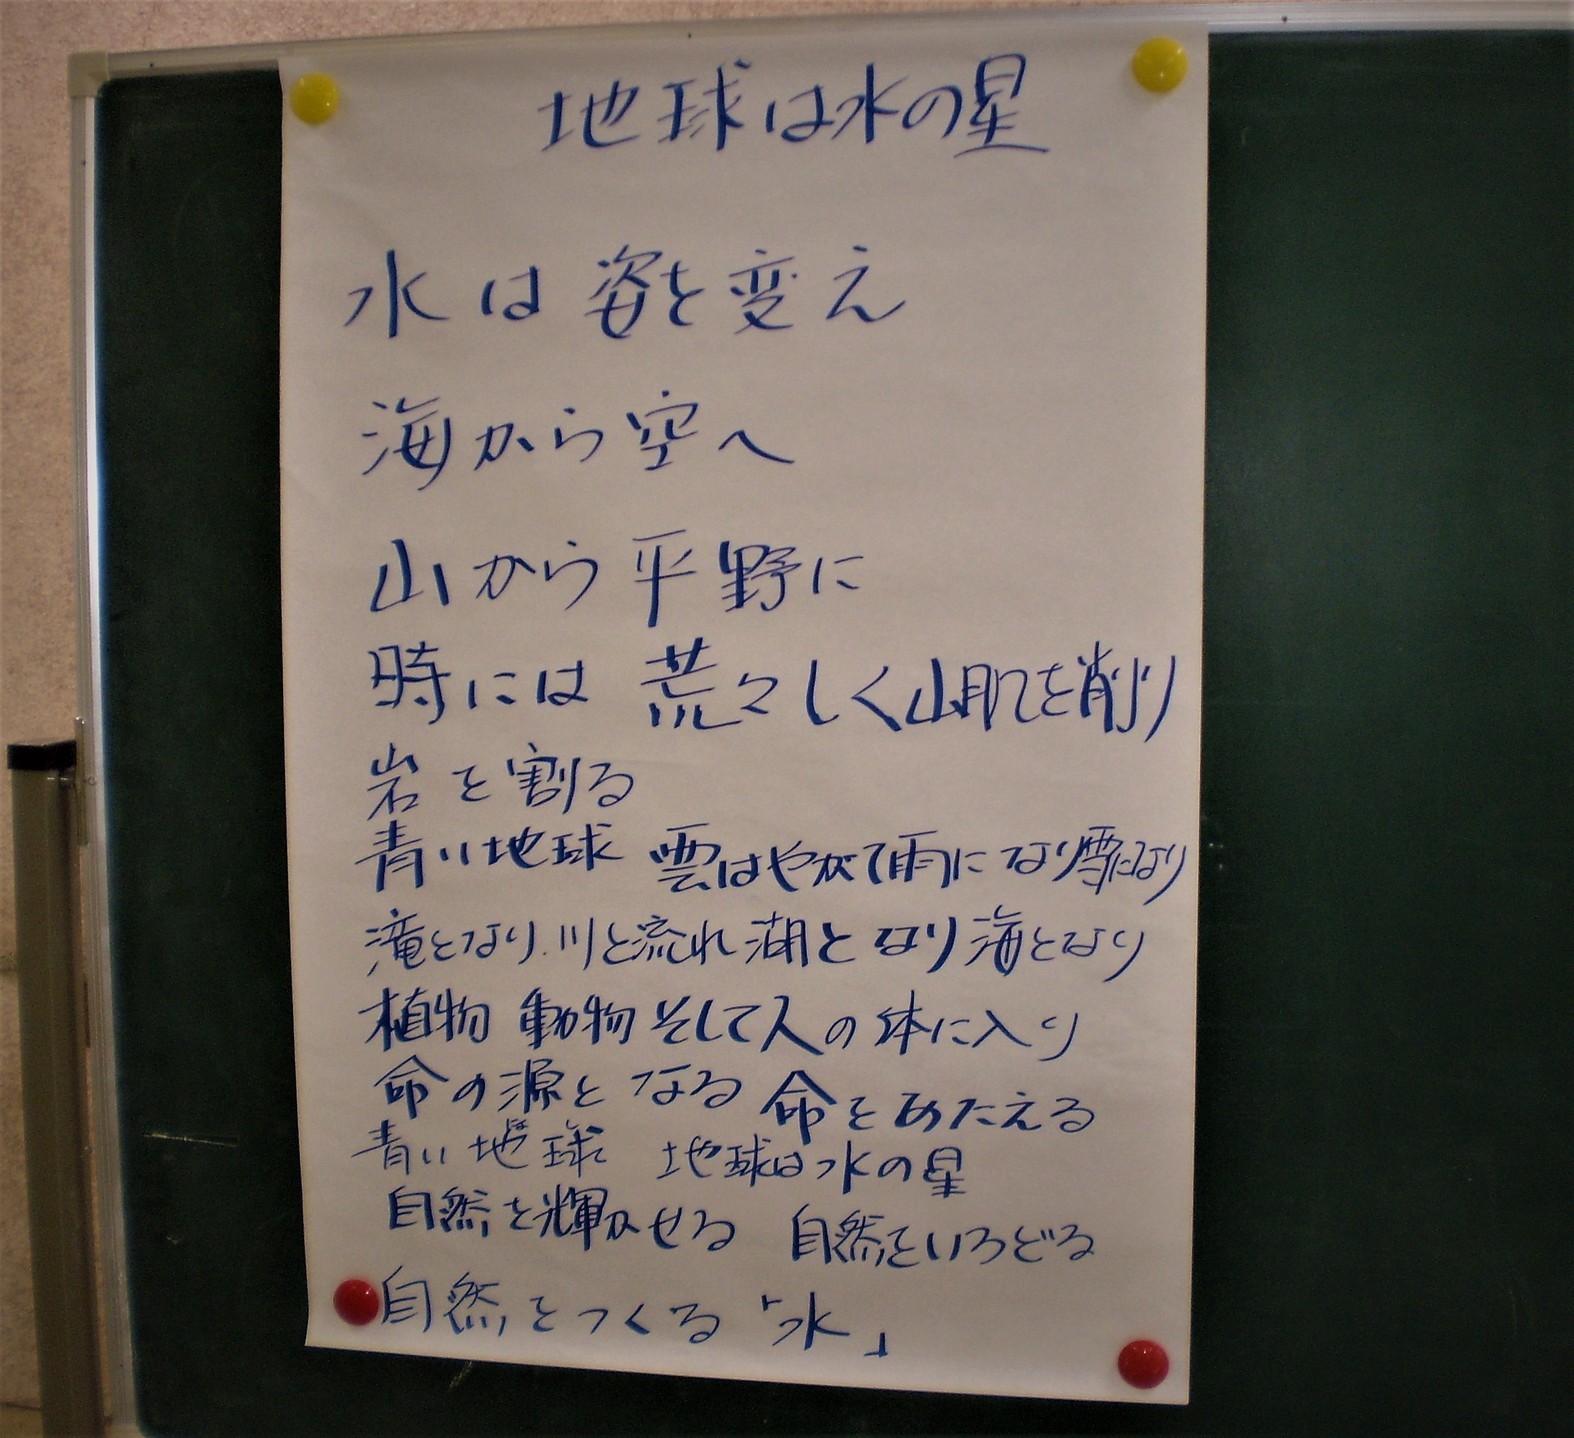 地球は水の星
水は姿を変え
海から空へ
山から平野に
時には 荒々しく山肌を削り
岩を割る
青い地球 雲はやがて雨になり雪になり
滝となり川と流れ湖となり海となり
植物 動物そして人の体に入り
命の源となる 命をあたえる
青い地球 地球は水の星
自然を輝かせる 自然をいろどる
自然をつくる「水」